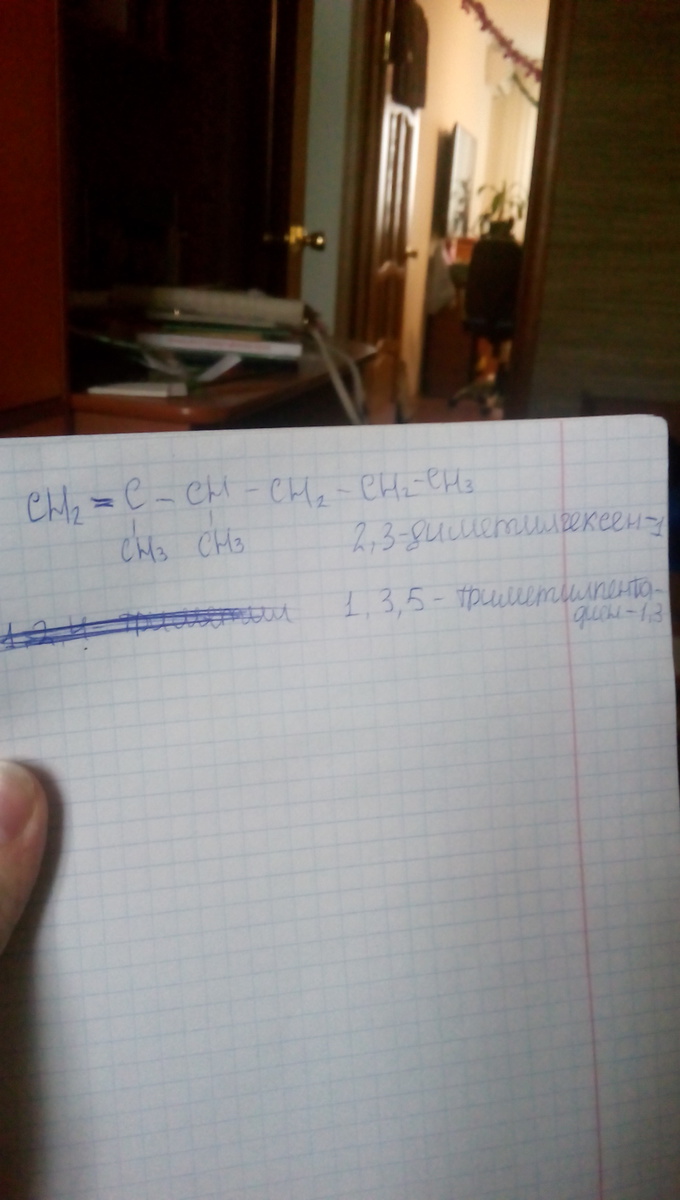 CH₂ = C – CH – CH₂ – CH₂ – CH₃
CH₃ CH₃
2,3-диметилгексен-1
1,2,4- триметил
1,3,5- триметилпента-
диен-1,3